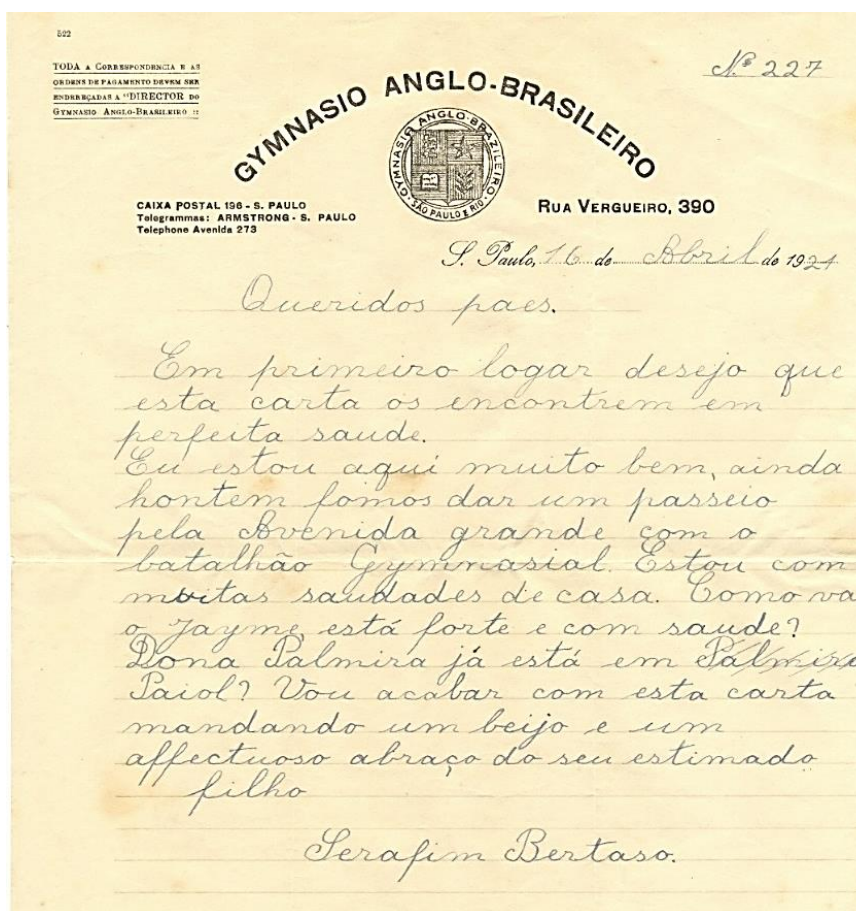 522
TODA A CORRESPONDENCIA E AS
ORDENS DE PAGAMENTO DEVEM SER
ENDEREÇADAS A "DIRECTOR DO
GYMNASIO ANGLO-BRASILEIRO ::
Nº 227
GYMNASIO ANGLO-BRASILEIRO
GYMNASIO ANGLO-BRAZILEIRO
SÃO PAULO E RIO
CAIXA POSTAL 196 - S. PAULO
Telegrammas: ARMSTRONG - S. PAULO
Telephone Avenida 273
RUA VERGUEIRO, 390
S. Paulo, 16 de Abril de 1921
Queridos paes.
Em primeiro logar desejo que
esta carta os encontrem em
perfeita saude.
Eu estou aqui muito bem, ainda
hontem fomos dar um passeio
pela Avenida grande com o
batalhão Gymnasial. Estou com
muitas saudades de casa. Como va
o Jayme, está forte e com saude?
Dona Palmira já está em Palmira
Paiol? Vou acabar com esta carta
mandando um beijo e um
affectuoso abraço do seu estimado
filho
Serafim Bertaso.